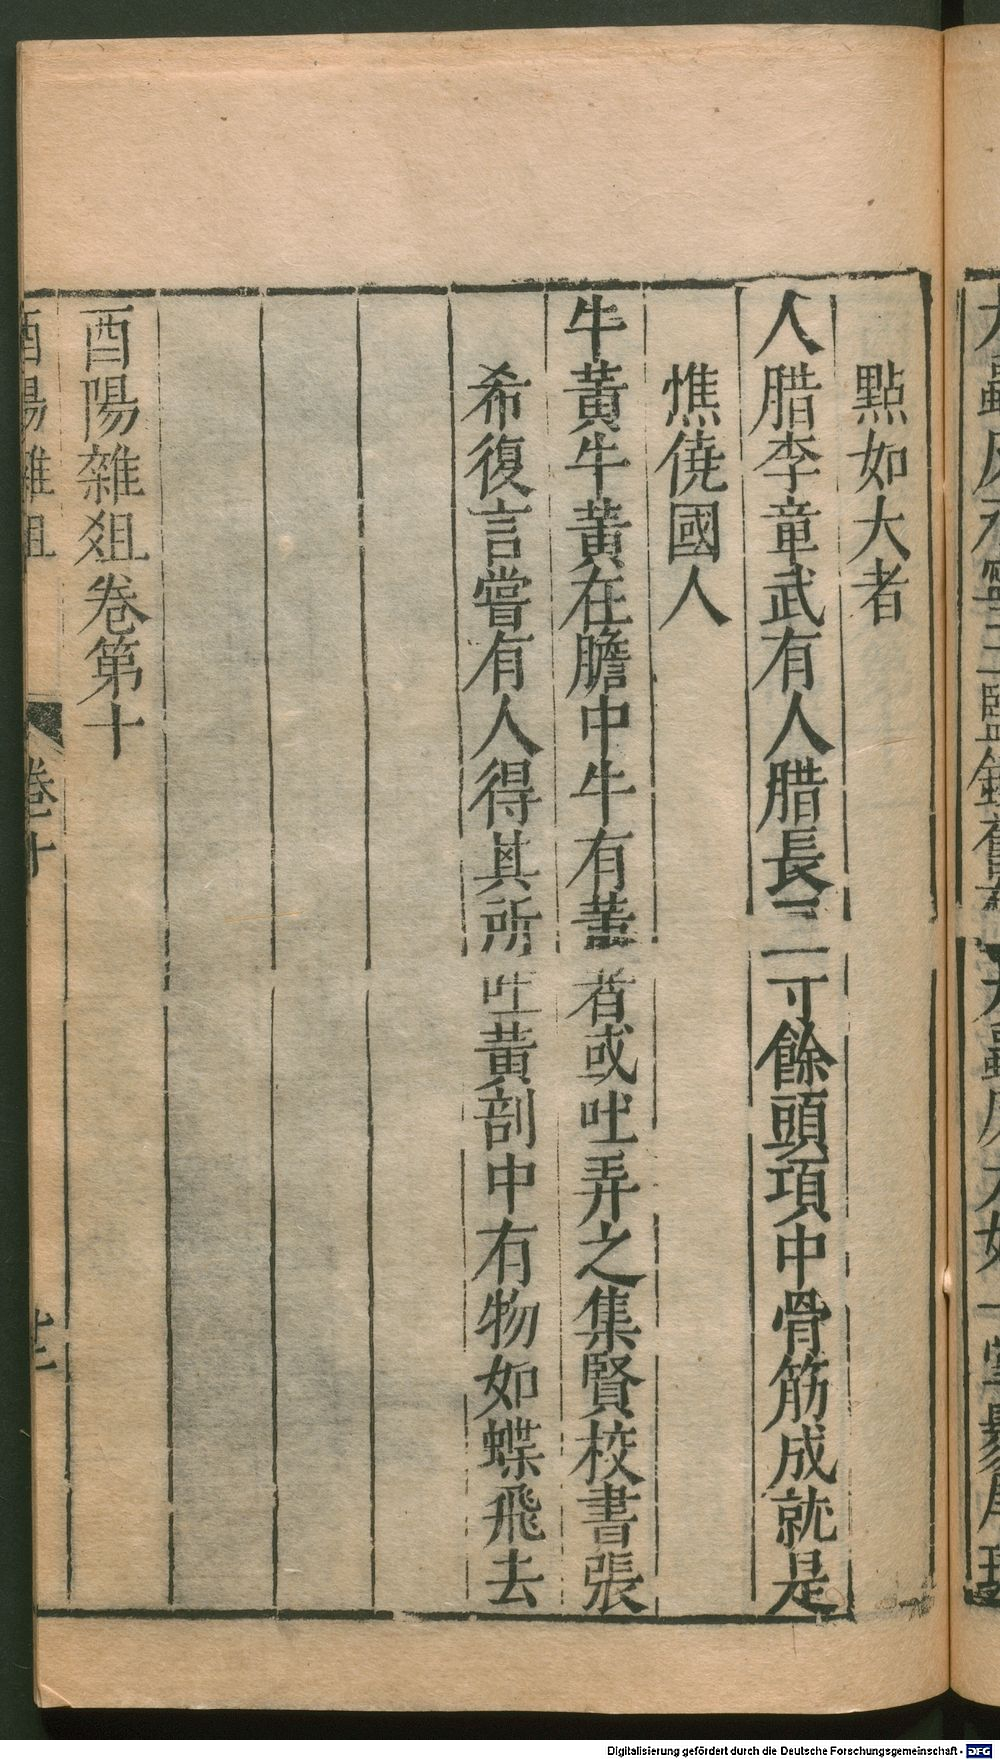 點如大者
人腊李章武有人腊長三寸餘頭項中骨筋成就是
僬僥國人
牛黃牛黃在膽中牛有黃者或吐弄之集賢校書張
希復言嘗有人得其所吐黃剖中有物如蝶飛去
酉陽雜俎卷第十
酉陽雜俎
卷十
Digitalisierung gefördert durch die Deutsche Forschungsgemeinschaft - DFG